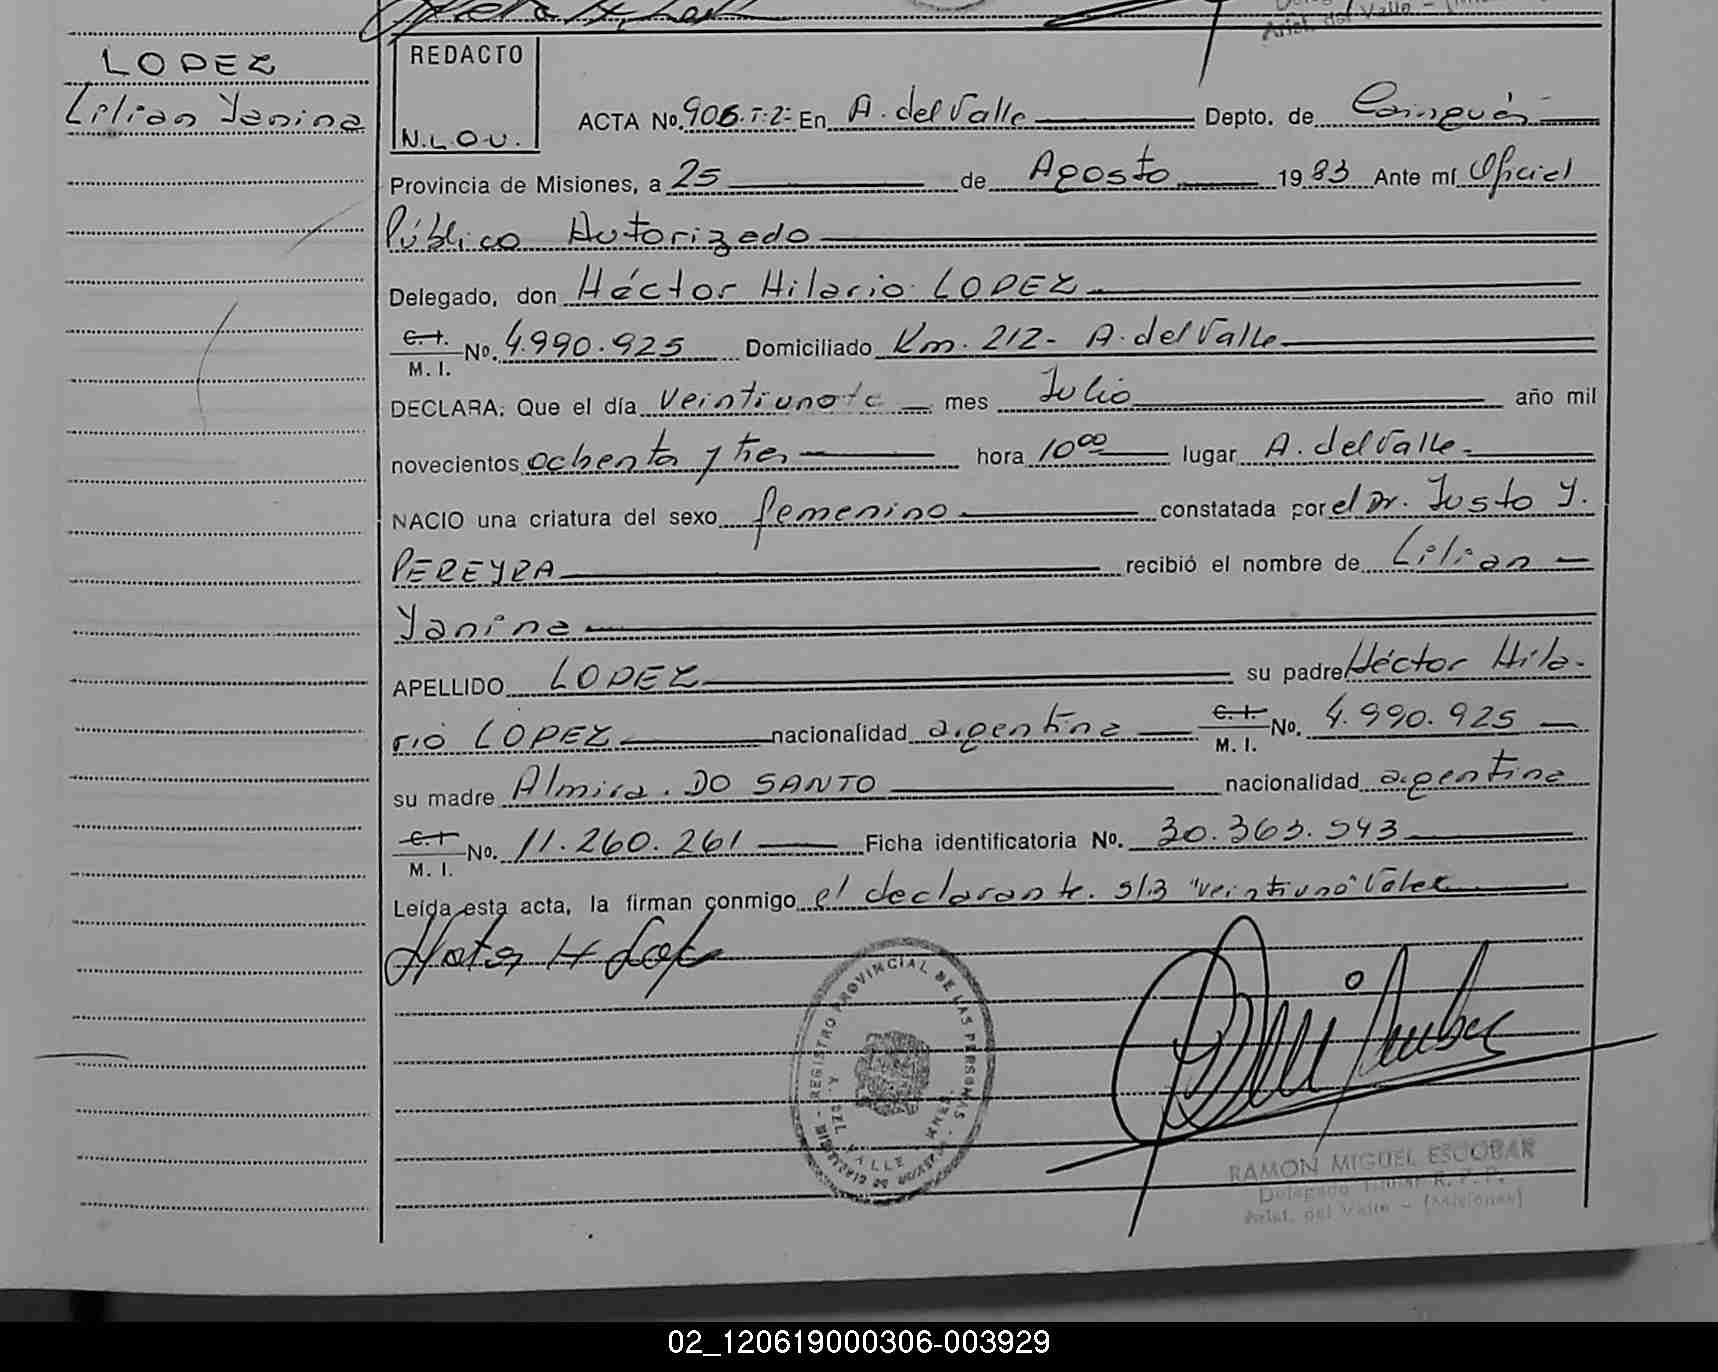 LOPEZ
Lilian Yanina
REDACTO
N.L.O.U.
ACTA No. 906.T:2: En A. del Valle Depto. de Cainguás
Provincia de Misiones, a 25 de Agosto 1983 Ante mí Oficial
Público Autorizado
Delegado, don Héctor Hilario LOPEZ
C. I. M. I. No. 4.990.925 Domiciliado Km. 212- A. del Valle
DECLARA: Que el día veintiuno mes Julio año mil
novecientos ochenta y tres hora 10⁰⁰ lugar A. del Valle
NACIO una criatura del sexo femenino constatada por el Dr. Justo Y.
PEREYRA recibió el nombre de Lilian
Yanina
APELLIDO LOPEZ su padre Héctor Hila-
rio LOPEZ nacionalidad argentina C. I. M. I. No. 4.990.925
su madre Almira. DO SANTO nacionalidad argentina
C. I M. I. No. 11.260.261 Ficha identificatoria No. 30.363.543
Leída esta acta, la firman conmigo el declarante. S/B "veintiuno" Vale
REGISTRO PROVINCIAL DE LAS PERSONAS
VALLE
RAMON MIGUEL ESCOBAR
Delegado Titular R. P. P.
Arist. del Valle - (Misiones)
02_120619000306-003929